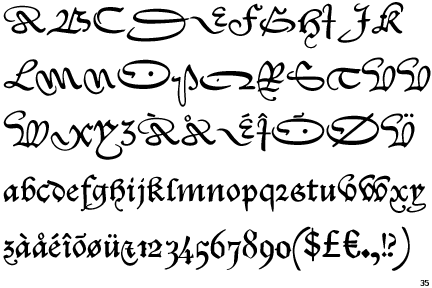 ABCDEFGHIJK
LMNOPQRSTUV
WXYZÀÅÉÎÕØÜ
abcdefghijklmnopqrstuvwxy
zàåéîõøü&1234567890($£€.,!?)
35